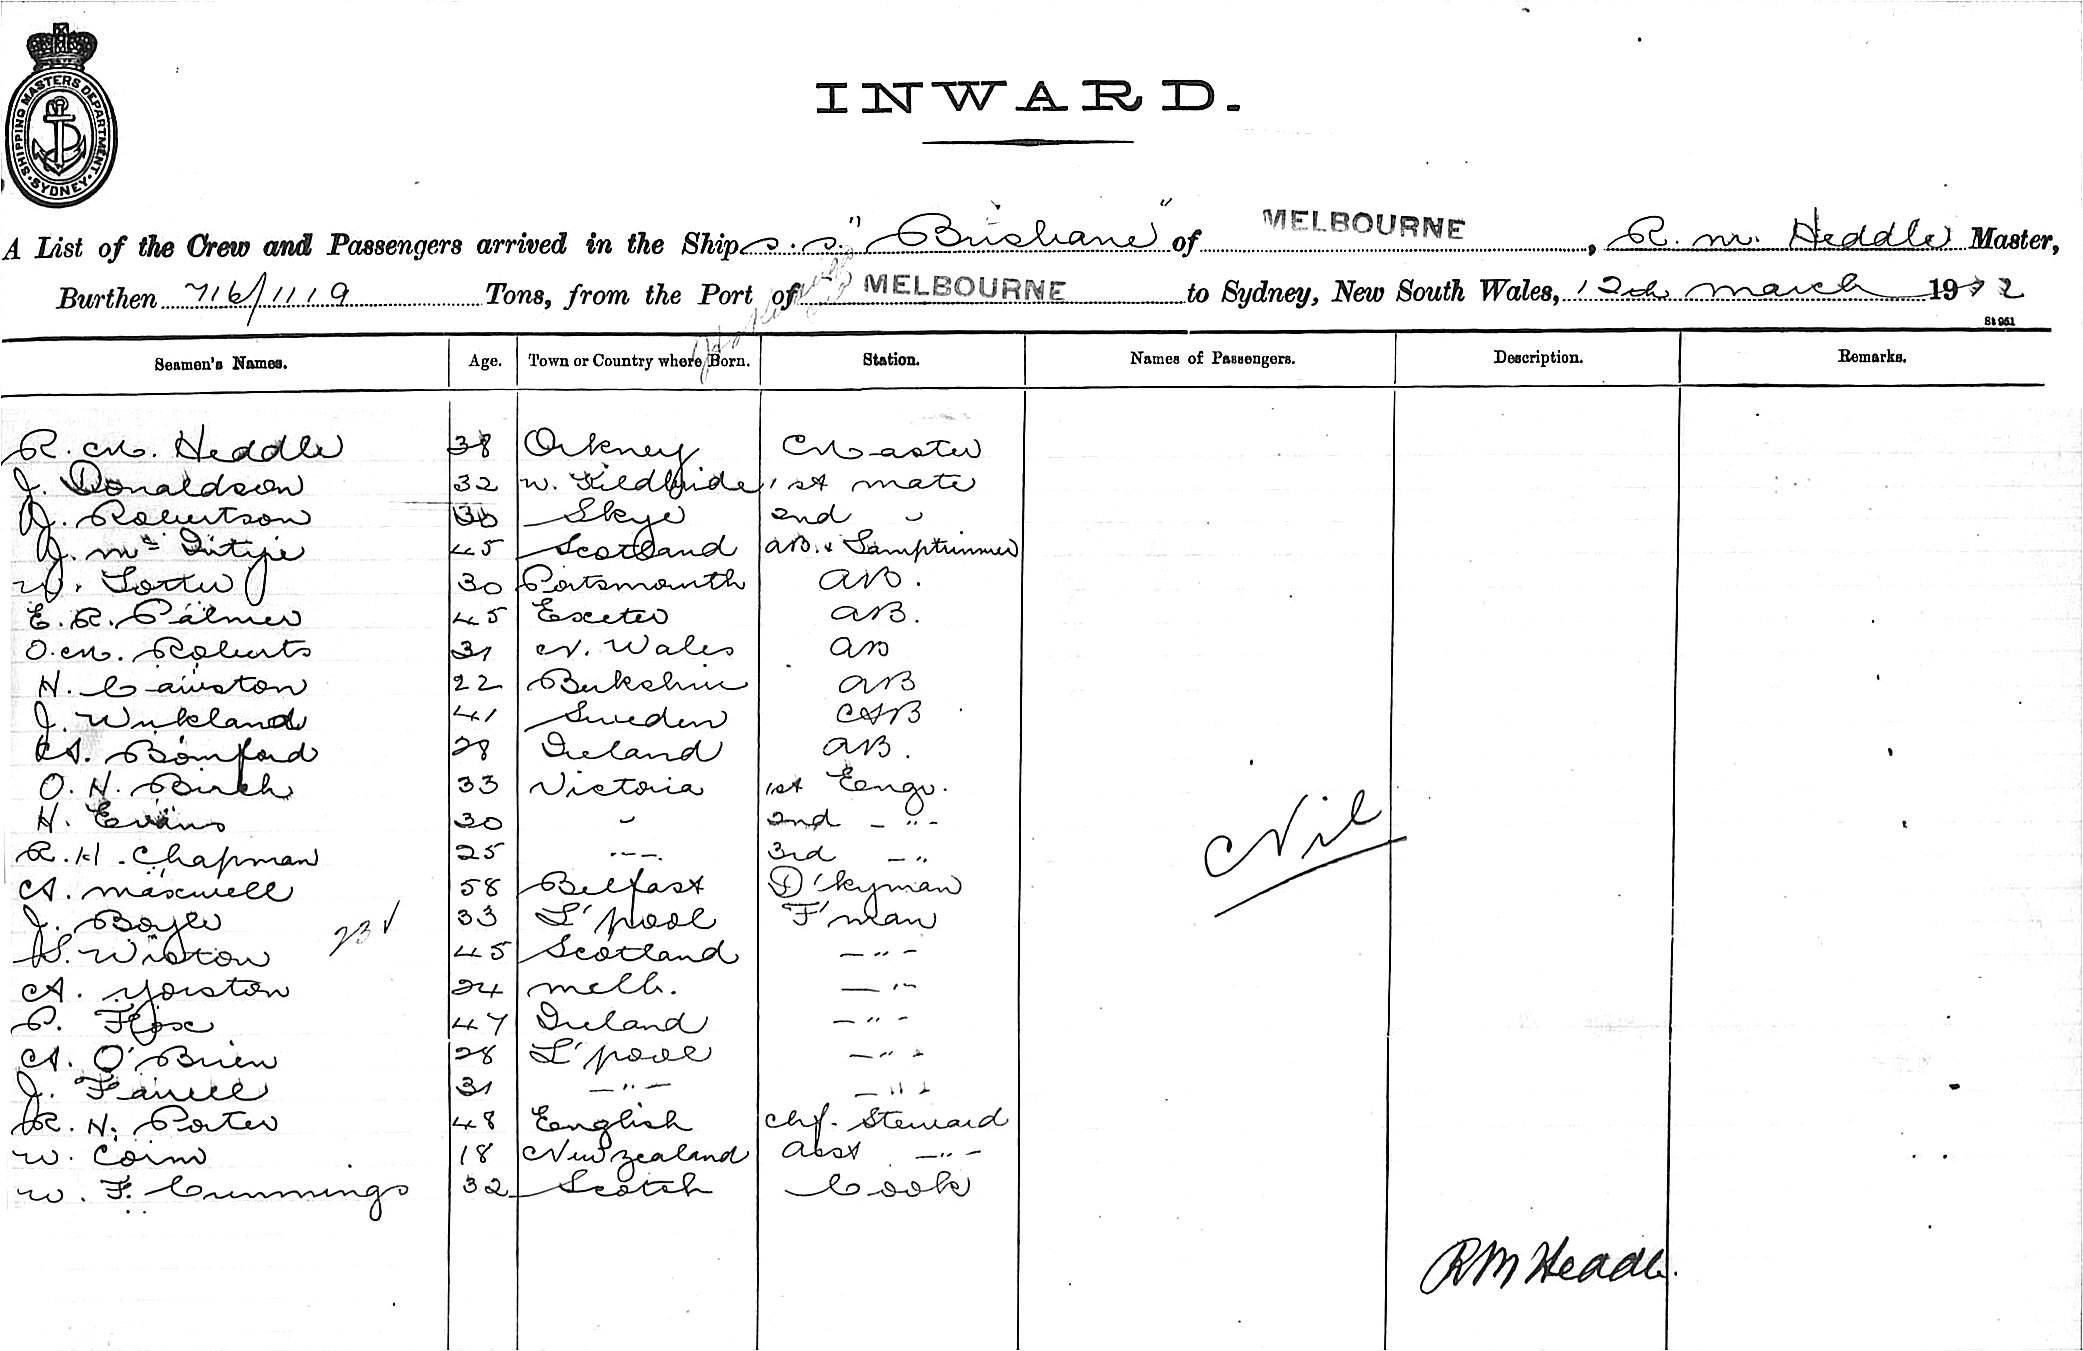 SHIPPING MASTERS DEPARTMENT
SYDNEY
INWARD.
A List of the Crew and Passengers arrived in the Ship s.s. "Brisbane" of MELBOURNE, R. M. Heddle Master,
Burthen 716/1119 Tons, from the Port of MELBOURNE to Sydney, New South Wales, 12th March 1912
St 951
Seamen's Names. Age. Town or Country where Born. Station. Names of Passengers. Description. Remarks.
R. M. Heddle 38 Orkney Master
J. Donaldson 32 W. Kildbride 1st mate
J. Robertson 30 Skye 2nd "
J. McIntyre 45 Scotland AB. & Lamptrimmer
W. Lotter 30 Portsmouth AB.
E. R. Palmer 45 Exeter AB.
O. M. Roberts 31 N. Wales AB
H. Cawston 22 Berkshire AB
J. Wukland 41 Sweden AB
A. Bomford 28 Ireland AB.
O. H. Birch 33 Victoria 1st Eengr.
H. Evans 30 " 2nd - " -
R. H. Chapman 25 - " - 3rd - "
A. Maxwell 58 Belfast D'kyman
J. Boyle 33 L'pool F'man
Wiston 45 Scotland - " -
A. Yorston 24 Melb. - " -
P. Fox 47 Ireland - " -
A. O'Brien 28 L'pool - " -
J. Farrell 31 - " - - " -
R. H. Porter 48 English chf. Steward
W. Corin 18 New Zealand Asst - " -
W. F. Cummings 32 Scotch Cook
Nil
23 ✓
RM Heddle.